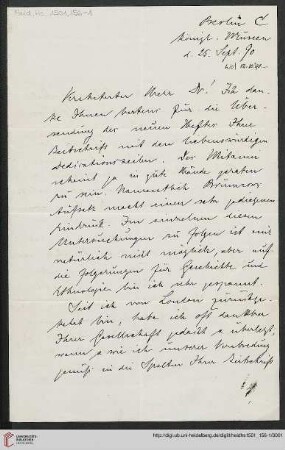 Berlin C
Königl. Museen
d. 25. Sept. 90
Verehrtester Herr Dr! Ich dan-
ke Ihnen bestens für die Ueber-
sendung des neuen Heftes Ihrer
Zeitschrift mit den liebenswürdigen
Dedicationszeilen. Der
scheint ja in gute Hände geraten
zu sein. Namentlich Brünnows
Aufsatz macht einen sehr gediegenen
Eindruck. Im einzelnen diesen
Untersuchungen zu folgen ist mir
natürlich nicht möglich, aber auf
die Folgerungen für Geschichte und
Ethnologie bin ich sehr gespannt.
Seit ich von London zurückge-
kehrt bin, habe ich oft dankbar
Ihrer Gesellschaft gedacht u überlegt,
wann u wie ich unserer Verabredung
gemäß in die Spalten Ihrer Zeitschrift
UNIVERSITÄTS-
BIBLIOTHEK
HEIDELBERG